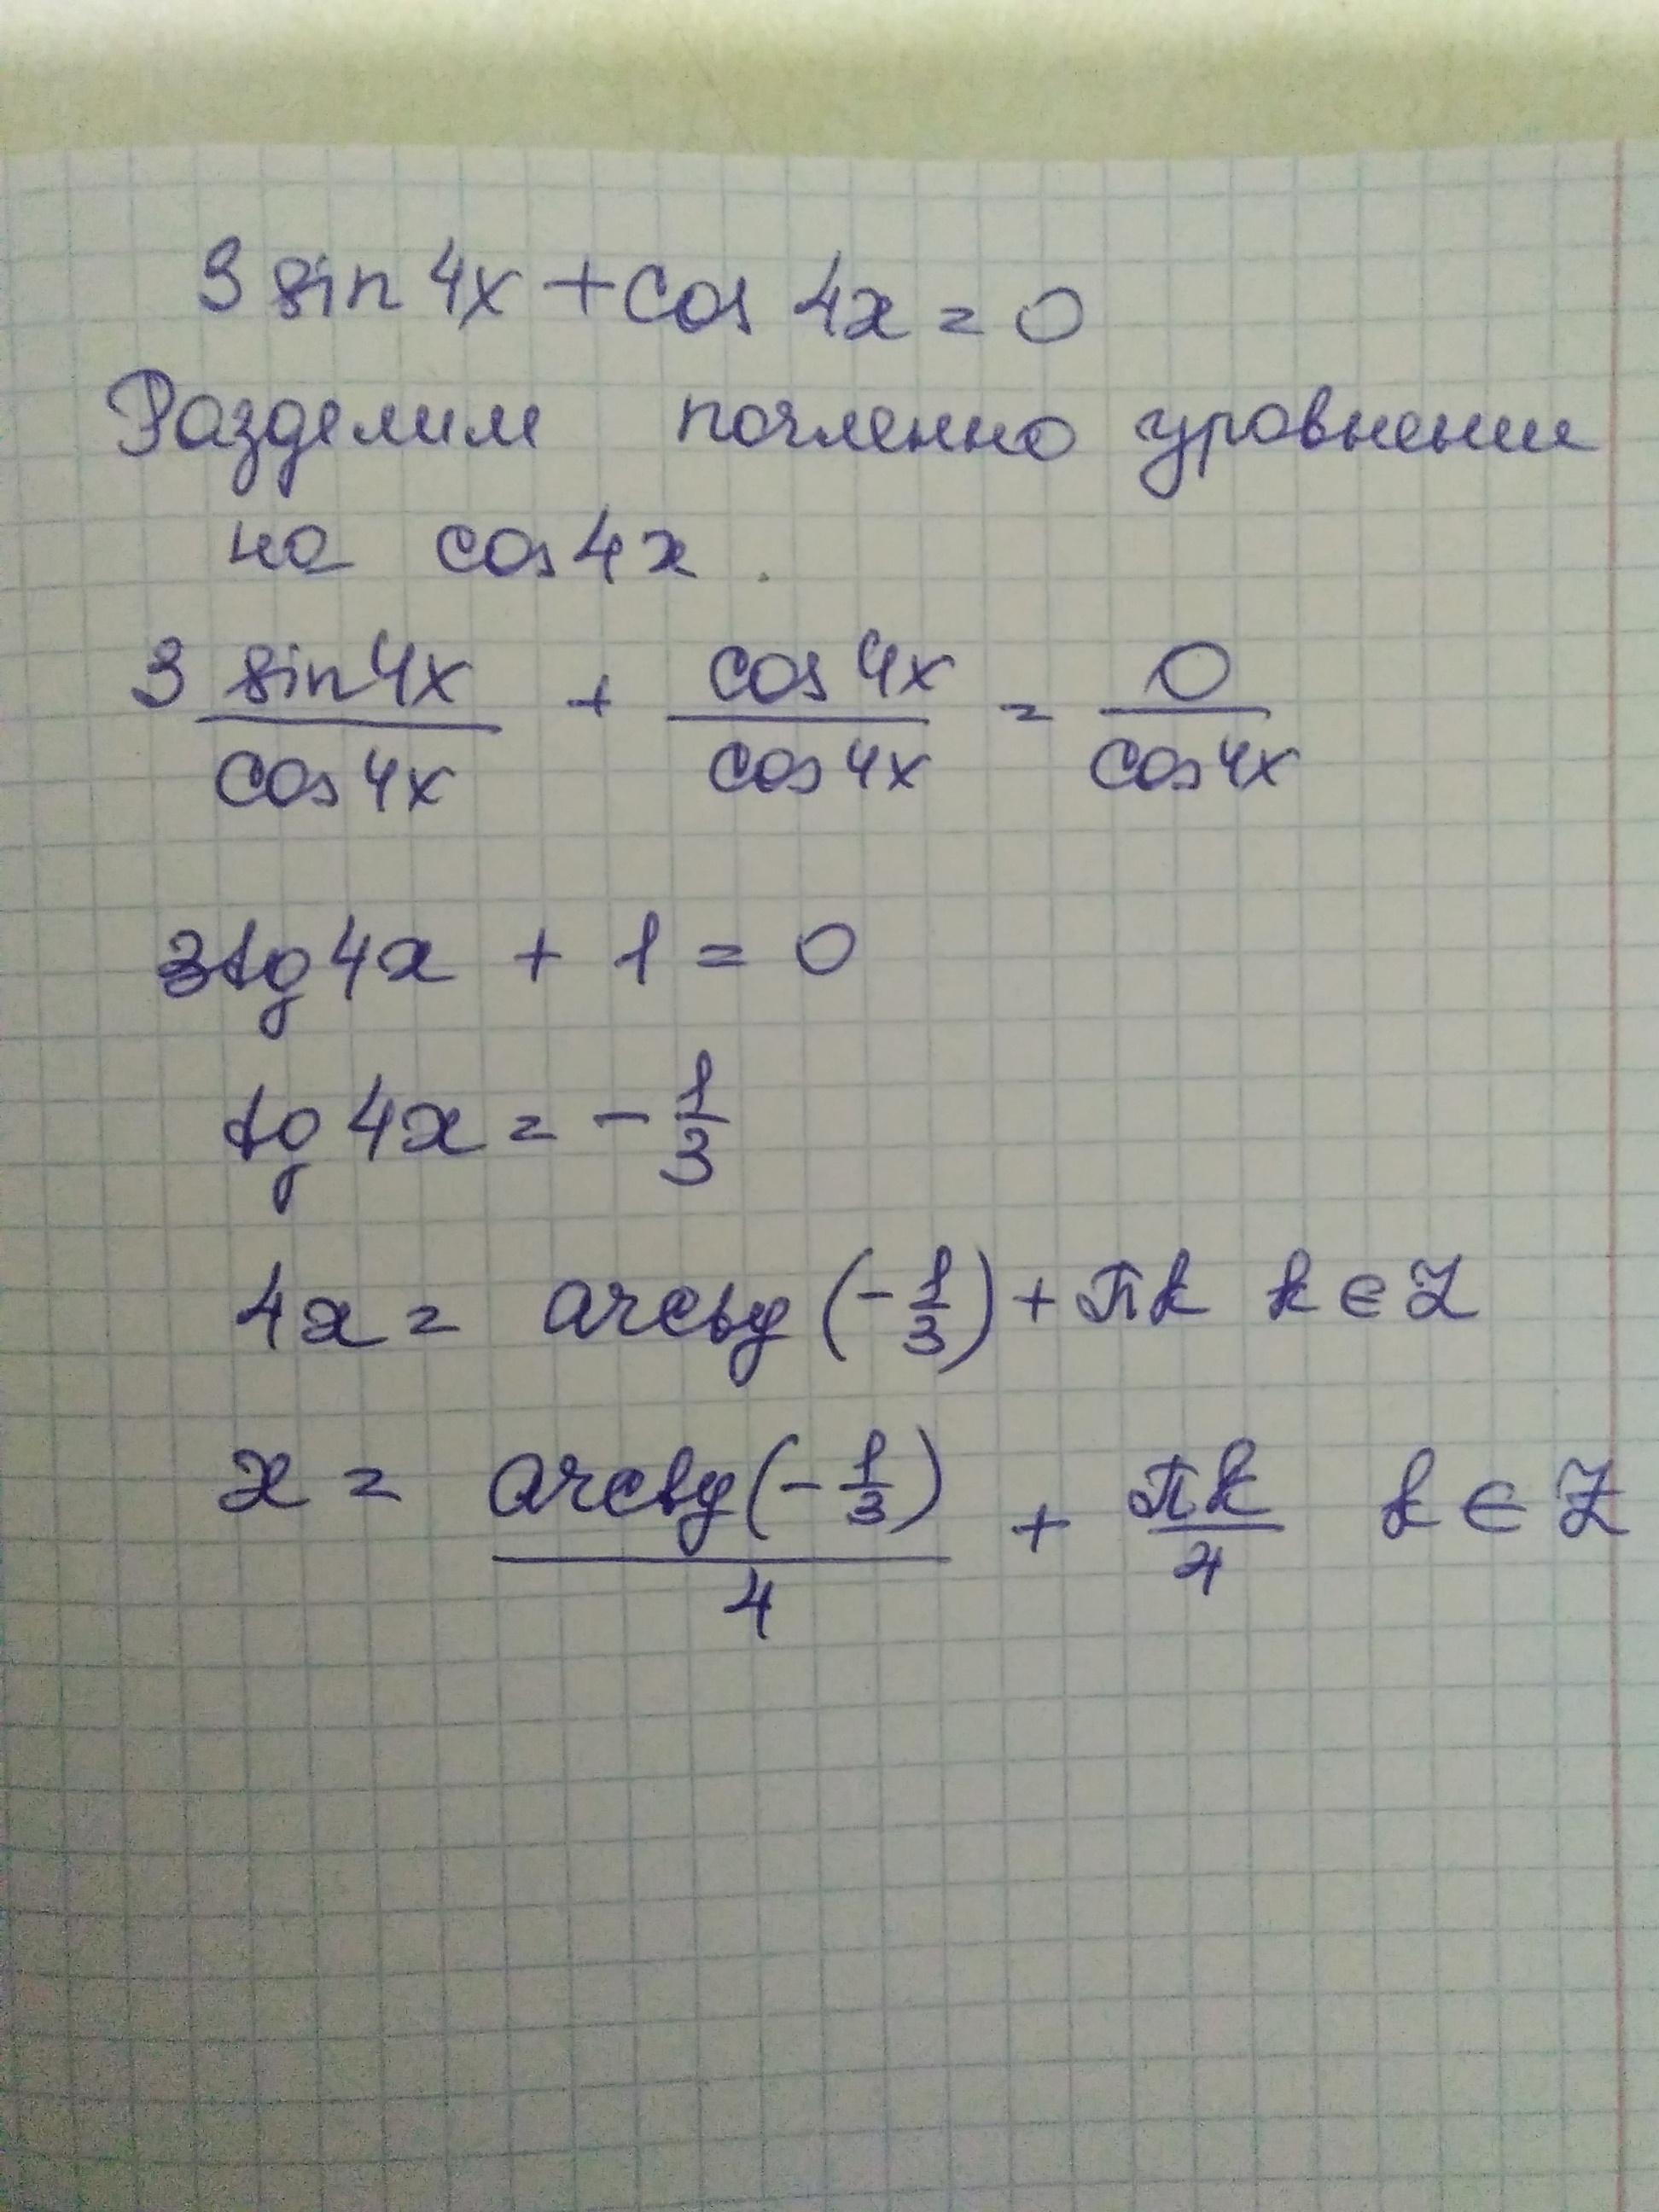 3 sin 4x + cos 4x = 0
Разделим почленно уровнение
на cos 4x.
3 sin 4x / cos 4x + cos 4x / cos 4x = 0 / cos 4x
3tg 4x + 1 = 0
tg 4x = - 1/3
4x = arctg (- 1/3) + πk k ∈ Z
x = arctg (- 1/3) / 4 + πk / 4 k ∈ Z